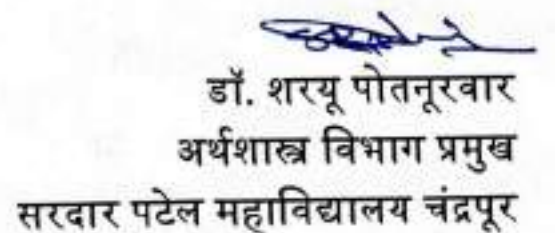 डॉ. शरयू पोतनूरवार
अर्थशास्त्र विभाग प्रमुख
सरदार पटेल महाविद्यालय चंद्रपूर